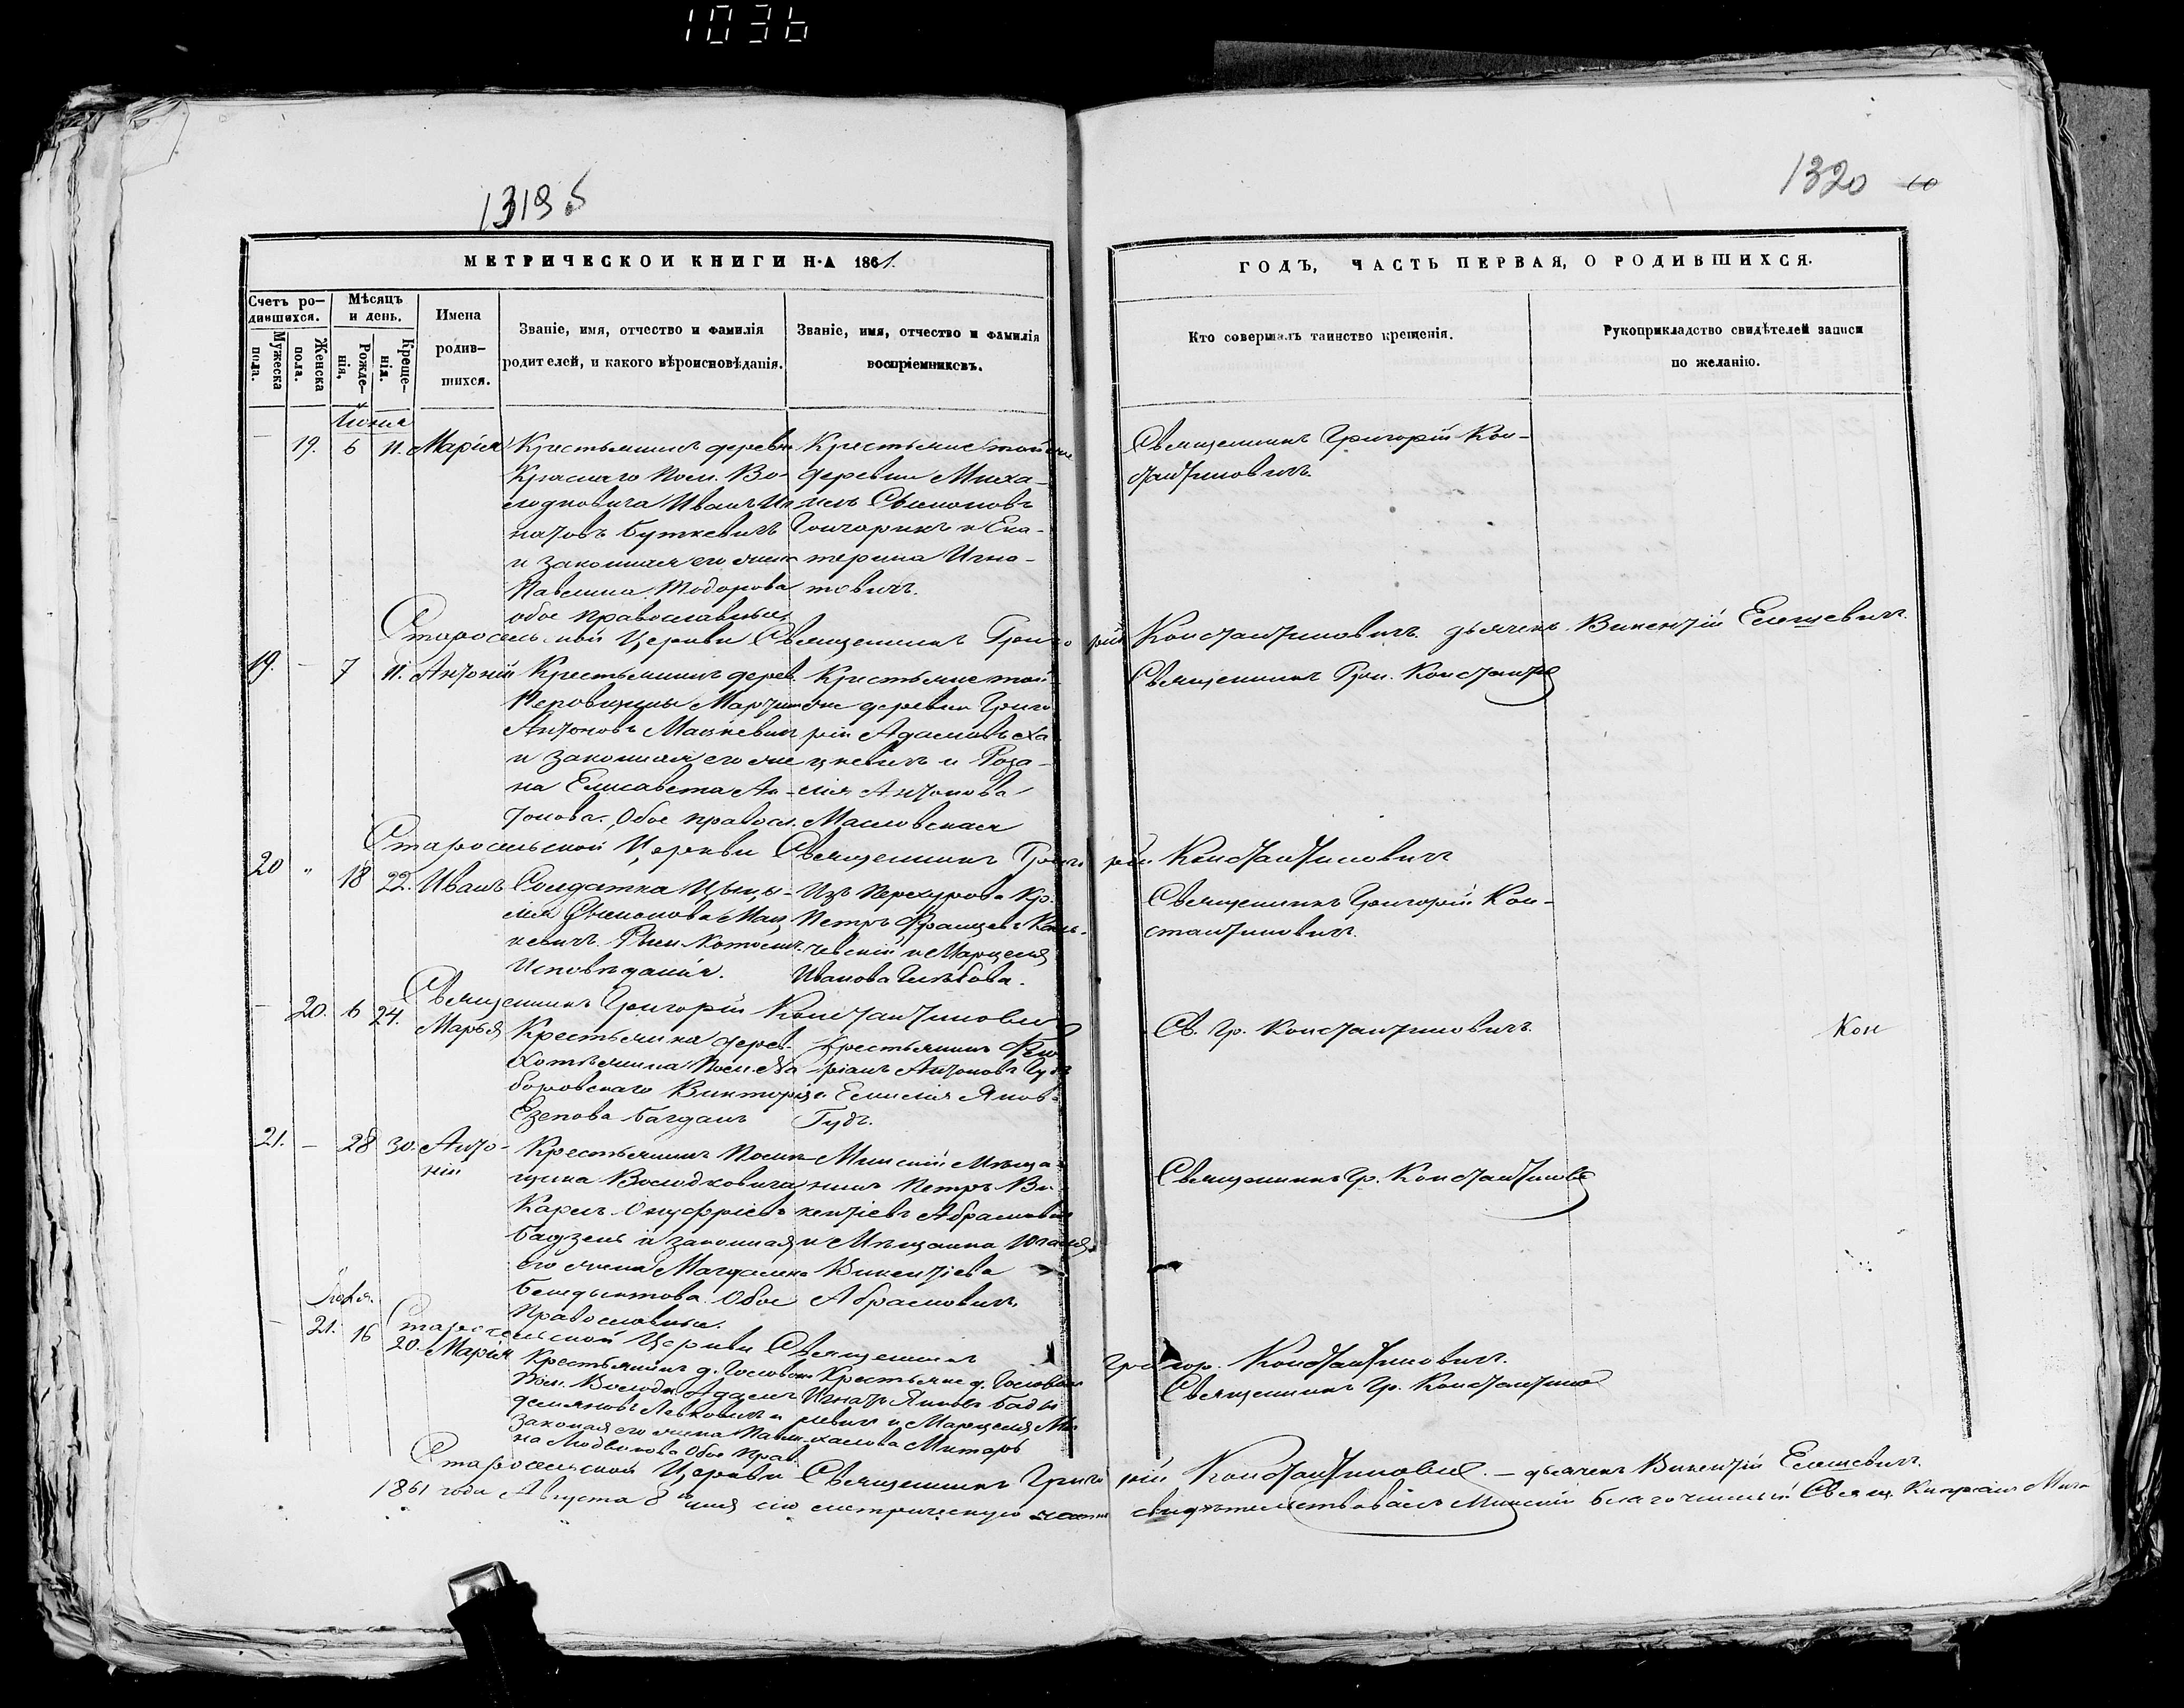 1036
1319 б
1320 60
МЕТРИЧЕСКОЙ КНИГИ НА 1861.
ГОДЪ, ЧАСТЬ ПЕРВАЯ, О РОДИВШИХСЯ.
Счетъ ро-
дившихся.
Мужеска
пола.
Женска
пола.
Мѣсяцъ
и день.
Рожде-
нія.
Креще-
нія.
Имена
родив-
шихся.
Званіе, имя, отчество и фамилія
родителей, и какого вѣроисповѣданія.
Званіе, имя, отчество и фамилія
воспріемниковъ.
Кто совершалъ таинство крещенія.
Рукоприкладство свидѣтелей записи
по желанію.
Іюня
— 19. 6 11. Марія
Крестьянинъ деревни
Краснаго Пом. Во-
лодковича Иванъ Иг
натовъ Буткевичъ
и законная его жена
Павелина Тодорова
обое православные
Крестьяне той же
деревни Миха-
илъ Сымоновъ
Гончарикъ и Ека-
терина Игна-
товичъ.
Священникъ Григорій Кон-
стантиновичъ.
Старосельской Церкви Священникъ Григорій Константиновичъ дьячекъ Викентій Елешевичъ.
19. — 7 11. Антоній
Крестьянинъ дерев.
Мартинъ
Антоновъ Мацкевичъ
и законная его же
на Елисавета Ан-
тонова. Обое правосл.
Крестьяне той
же деревни Григо
рій Адамовъ Ха
цкевичъ и Роза-
лія Антонова
Масловская
Священникъ Григ. Константи
Старосельской Церкви Священникъ Григорій Константиновичъ
20 " 18 22. Иванъ
Солдатка Цецы-
лія Сымонова Мац
кевичъ. Рим. Католич.
Исповѣданія.
Изъ Перехурова Кр.
Петръ Францевъ
и Марцеля
Иванова Глѣбова.
Священникъ Григорій Кон-
стантиновичъ.
Священникъ Григорій Константиновичъ
— 20. 6 24. Марья
Крестьянка дерев.
Хотѣянина Пом. Ха
боровскаго Викторія
Езепова Багданъ
Крестьянинъ
Антоновъ Гудъ
и Емилія Яков-
Гудъ.
Св. Гр. Константиновичъ
Кон
21. — 28 30. Анто-
ній
Крестьянинъ Помѣ-
щика Володковича
Карлъ Онуфріевъ
Бадзень и законная
его жена Магдалена
Бенедыктова. Обое
Православные.
Минскій Мѣща-
нинъ Петръ Ви-
кентіевъ Абрамович
и Мѣщанка Юлія
Викентіева
Абрамовичъ.
Священникъ Гр. Константинов
Старосельской Церкви Священникъ Григор. Константиновичъ.
Іюля.
— 21. 16 20. Марія
Крестьянинъ д.
Пом. Володк. Адамъ
Демяновъ Левковичъ и
законная его жена Павли-
на Людвикова Обое прав.
Крестьяне д.
Игнатъ Яковъ
и Марцеля Ми
халова Митаръ
Священникъ Гр. Константино
Старосельской Церкви Священникъ Григорій Константинович. — дьячекъ Викентій Елешевичъ.
1861 года Августа 8 дня сію метрическую свидѣтельствовалъ Минскій благочинный Свящ.